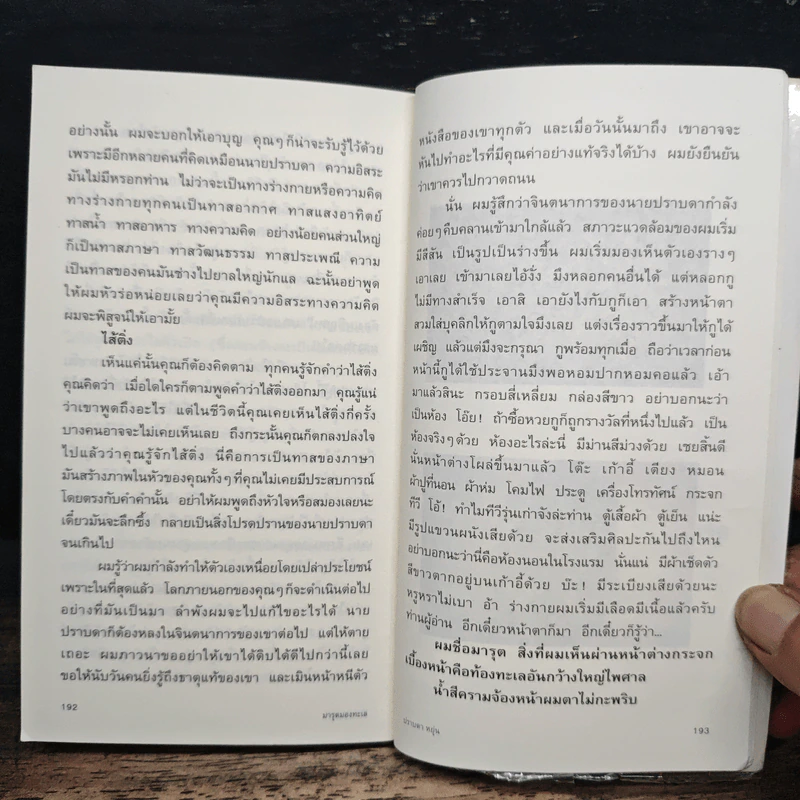 อย่างนั้น ผมจะบอกให้เอาบุญ คุณๆ ก็น่าจะรับรู้ไว้ด้วย
เพราะมีอีกหลายคนที่คิดเหมือนนายปราบดา ความอิสระ
มันไม่มีหรอกท่าน ไม่ว่าจะเป็นทางร่างกายหรือความคิด
ทางร่างกายทุกคนเป็นทาสอากาศ ทาสแสงอาทิตย์
ทาสน้ำ ทาสอาหาร ทางความคิด อย่างน้อยคนส่วนใหญ่
ก็เป็นทาสภาษา ทาสวัฒนธรรม ทาสประเพณี ความ
เป็นทาสของคนมันช่างไปยาลใหญ่นักแล ฉะนั้นอย่าพูด
ให้ผมหัวร่อหน่อยเลยว่าคุณมีความอิสระทางความคิด
ผมจะพิสูจน์ให้เอามั้ย
ไส้ติ่ง
เห็นแค่นั้นคุณก็ต้องคิดตาม ทุกคนรู้จักคำว่าไส้ติ่ง
คุณคิดว่า เมื่อใดใครก็ตามพูดคำว่าไส้ติ่งออกมา คุณรู้แน่
ว่าเขาพูดถึงอะไร แต่ในชีวิตนี้คุณเคยเห็นไส้ติ่งกี่ครั้ง
บางคนอาจจะไม่เคยเห็นเลย ถึงกระนั้นคุณก็ตกลงปลงใจ
ไปแล้วว่าคุณรู้จักไส้ติ่ง นี่คือการเป็นทาสของภาษา
มันสร้างภาพในหัวของคุณทั้งๆ ที่คุณไม่เคยมีประสบการณ์
โดยตรงกับคำคำนั้น อย่าให้ผมพูดถึงหัวใจหรือสมองเลยนะ
เดี๋ยวมันจะลึกซึ้ง กลายเป็นสิ่งโปรดปรานของนายปราบดา
จนเกินไป
ผมรู้ว่าผมกำลังทำให้ตัวเองเหนื่อยโดยเปล่าประโยชน์
เพราะในที่สุดแล้ว โลกภายนอกของคุณๆ ก็จะดำเนินต่อไป
อย่างที่มันเป็นมา ลำพังผมจะไปแก้ไขอะไรได้ นาย
ปราบดาก็ต้องหลงในจินตนาการของเขาต่อไป แต่ให้ตาย
เถอะ ผมภาวนาขออย่าให้เขาได้ดิบได้ดีไปกว่านี้เลย
ขอให้นับวันคนยิ่งรู้ถึงธาตุแท้ของเขา และเมินหน้าหนีตัว
192
มารุตมองทะเล
หนังสือของเขาทุกตัว และเมื่อวันนั้นมาถึง เขาอาจจะ
หันไปทำอะไรที่มีคุณค่าอย่างแท้จริงได้บ้าง ผมยังยืนยัน
ว่าเขาควรไปกวาดถนน
นั่น ผมรู้สึกว่าจินตนาการของนายปราบดากำลัง
ค่อยๆ คืบคลานเข้ามาใกล้แล้ว สภาวะแวดล้อมของผมเริ่ม
มีสีสัน เป็นรูปเป็นร่างขึ้น ผมเริ่มมองเห็นตัวเองรางๆ
เอาเลย เข้ามาเลยไอ้งั่ง มึงหลอกคนอื่นได้ แต่หลอกกู
ไม่มีทางสำเร็จ เอาสิ เอายังไงกับกูก็เอา สร้างหน้าตา
สวมใส่บุคลิกให้กูตามใจมึงเลย แต่งเรื่องราวขึ้นมาให้กูได้
เผชิญ แล้วแต่มึงจะกรุณา กูพร้อมทุกเมื่อ ถือว่าเวลาก่อน
หน้านี้กูได้ใช้ประจานมึงพอหอมปากหอมคอแล้ว เอ้า
มาแล้วสินะ กรอบสี่เหลี่ยม กล่องสีขาว อย่าบอกนะว่า
เป็นห้อง โอ๊ย! ถ้าซื้อหวยกูก็ถูกรางวัลที่หนึ่งไปแล้ว เป็น
ห้องจริงๆ ด้วย ห้องอะไรล่ะนี่ มีม่านสีม่วงด้วย เชยสิ้นดี
นั่นหน้าต่างโผล่ขึ้นมาแล้ว โต๊ะ เก้าอี้ เตียง หมอน
ผ้าปูที่นอน ผ้าห่ม โคมไฟ ประตู เครื่องโทรทัศน์ กระจก
ทีวี โอ้! ทำไมทีวีรุ่นเก่าจังล่ะท่าน ตู้เสื้อผ้า ตู้เย็น แน่ะ
มีรูปแขวนผนังเสียด้วย จะส่งเสริมศิลปะกันไปถึงไหน
อย่าบอกนะว่านี่คือห้องนอนในโรงแรม นั่นแน่ มีผ้าเช็ดตัว
สีขาวตากอยู่บนเก้าอี้ด้วย บ๊ะ! มีระเบียงเสียด้วยนะ
หรูหราไม่เบา อ้า ร่างกายผมเริ่มมีเลือดมีเนื้อแล้วครับ
ท่านผู้อ่าน อีกเดี๋ยวหน้าตาก็มา อีกเดี๋ยวก็รู้ว่า...
ผมชื่อมารุต สิ่งที่ผมเห็นผ่านหน้าต่างกระจก
เบื้องหน้าคือท้องทะเลอันกว้างใหญ่ไพศาล
น้ำสีครามจ้องหน้าผมตาไม่กะพริบ
ปราบดา หยุ่น
193